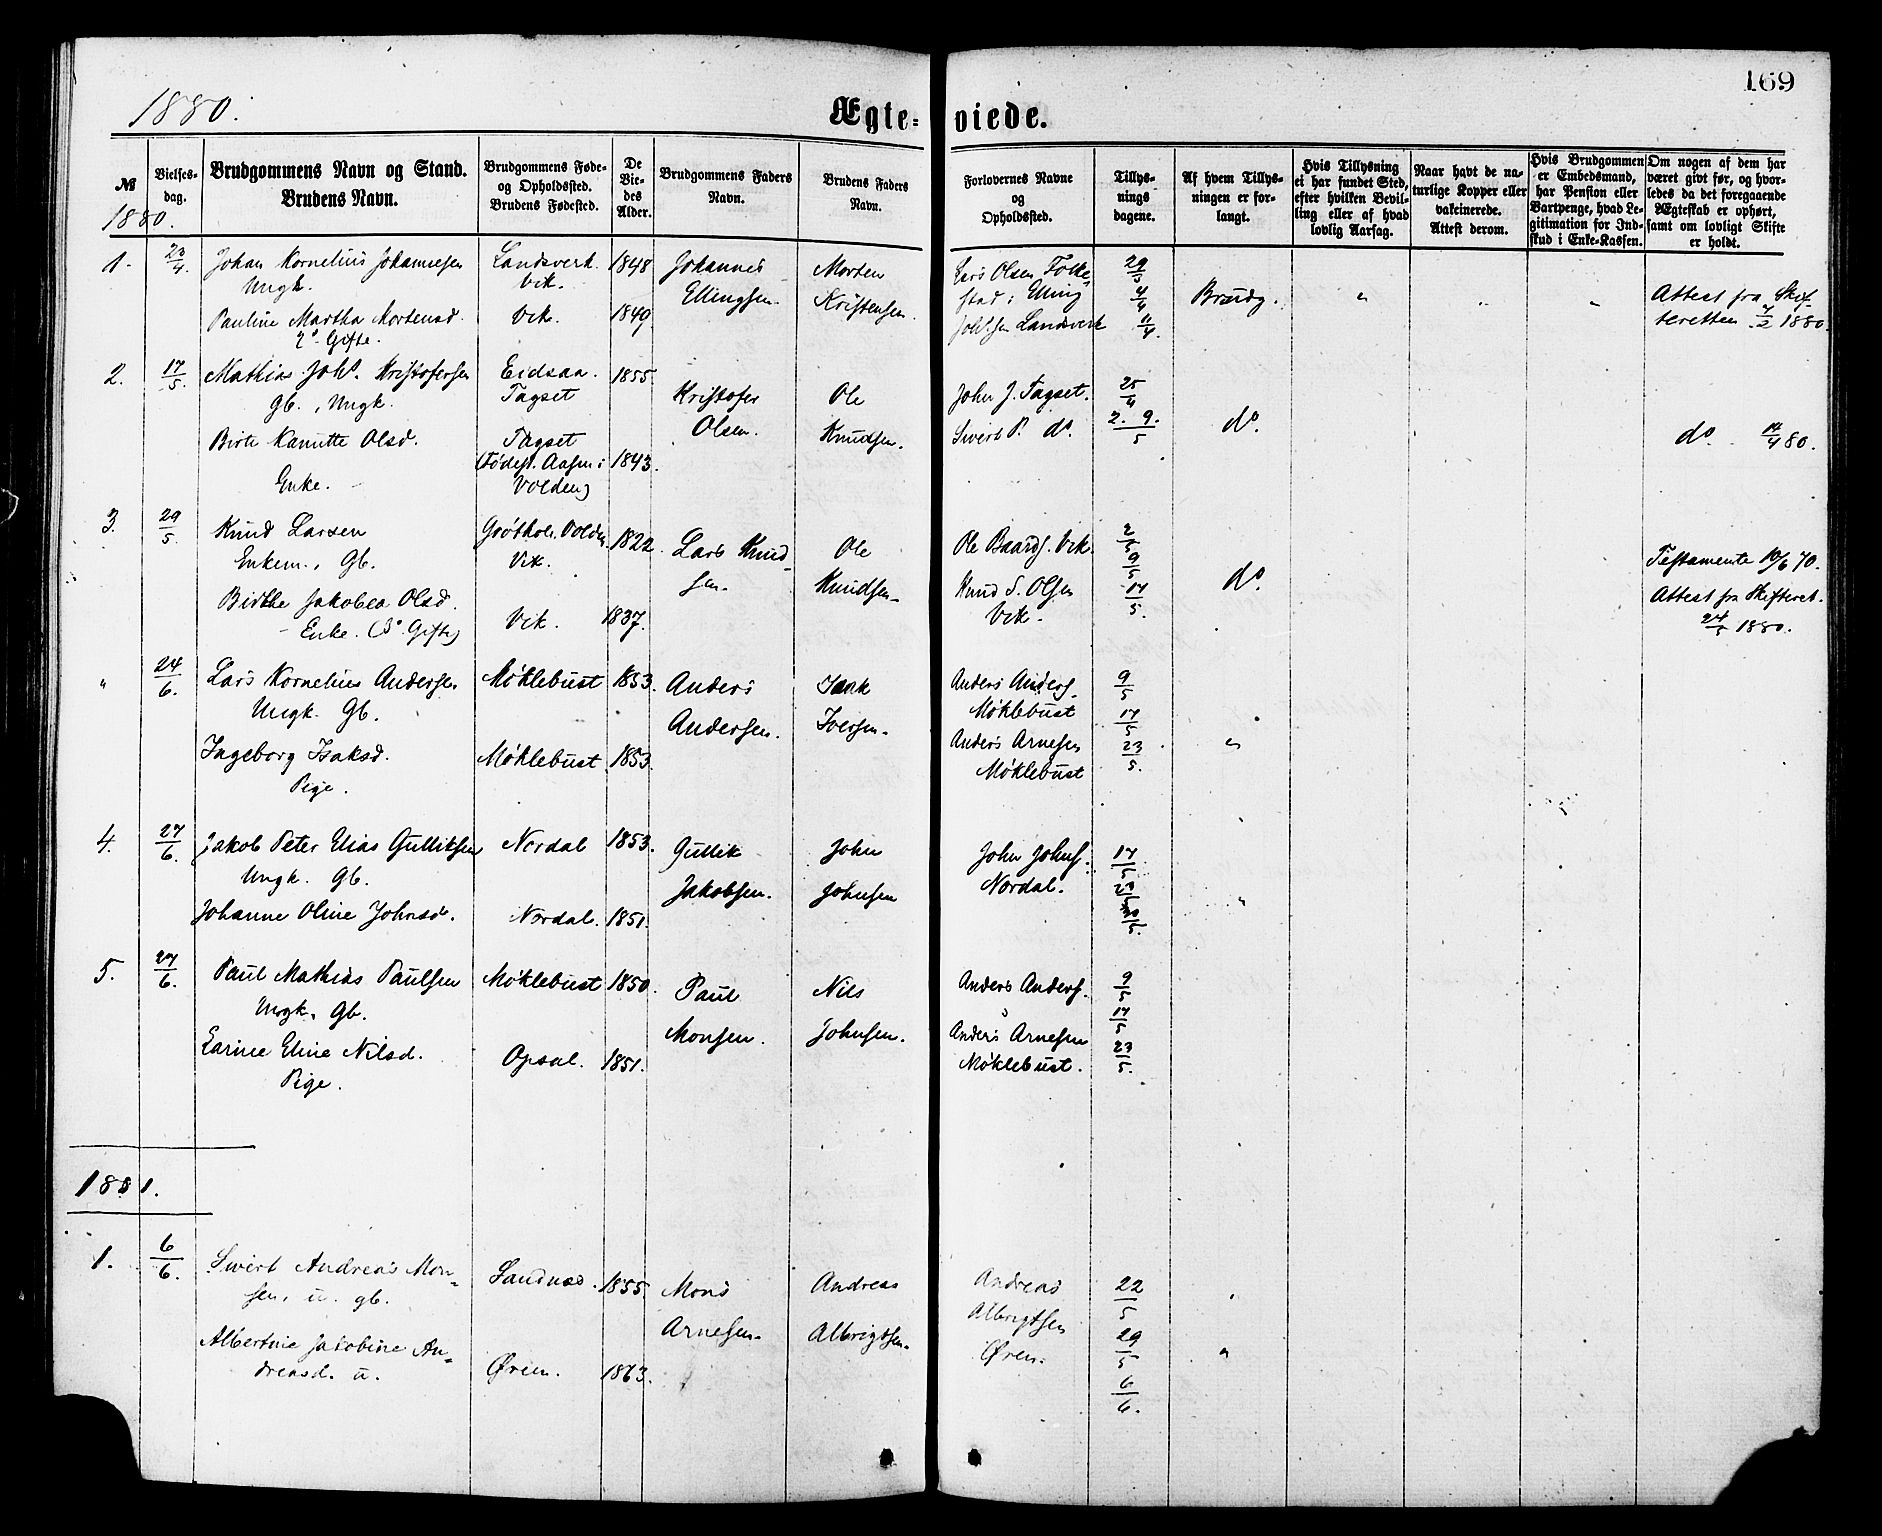 169
1880.
Ægte- viede.
№
Vielses-
dag.
Brudgommens Navn og Stand.
Brudens Navn.
Brudgommens Føde-
og Opholdssted.
Brudens Fødested.
De
Vie-
des
Alder.
Brudgommens Faders
Navn.
Brudens Faders
Navn.
Forlovernes Navne
og
Opholdssted.
Tillys-
nings
dagene.
Af hvem Tillys-
ningen er for-
langt.
Hvis Tillysning
ei har fundet Sted,
efter hvilken Bevil-
ling eller af hvad
lovlig Aarsag.
Naar havt de na-
turlige Kopper eller
vakcinerede.
Attest derom.
Hvis Brudgommen
er Embedsmand,
har Pension eller
Vartpenge, hvad Le-
gitimation for Ind-
skud i Enke-Kassen.
Om nogen af dem har
været givt før, og hvor-
ledes da det foregaaende
Ægteskab er ophørt,
samt om lovligt Skifte
er holdt.
1880.
1. 23/4. Johan Kornelius Johannesen Landsverk. 1848 Johannes Morten Lars Olsen Folke- 29/3
Ungk. Vik. Ellingsen. Kristensen. stad; Elling 4/4 Brudg. " " " Attest fra Skif-
Pauline Martha Mortensd. Vik. 1849 Johs'sen Landsverk 11/4 teretten 7/2 1880.
2° Gifte.
2. 17/5. Mathias Joh's. Kristofersen Eidsaa. 1855 Kristofer Ole John J. Tagset. 25/4
Gb., Ungk. Tagset Olsen. Knudsen. Sivert P. d°. 2. 9./5 d°.
Birte Kanutte Olsd. Tagset d°. 14/4 80.
(Fødest. Aasen i 1843.
Enke. Volden)
3. 29/5. Knud Larsen Grøthol. Volden. 1822. Lars Knud- Ole Ole Baards. Vik. 2/5
Enkem., Gb. Vik. sen. Knudsen- Knud S. Olsen 9/5 d°. Testamente 10/6 70.
Birthe Jakobea Olsd. Vik. 1837. Vik. 17/5. Attest fra Skifteret.
- Enke. (3° Gifte) 24/5 1880.
" 24/6. Lars Kornelius Anderse. Møklebust 1853. Anders Isak Anders Anders. 9/5
Ungk. Gb. Andersen. Iversen. Møklebust 17/5
Ingeborg Isaksd. Møklebust. 1853. Anders Arnesen 23/5. "
Pige. Møklebust
4. 27/6. Jakob Peter Elias Gulliksen Nordal 1853. Gullik John John Johns. 17/5
Ungk. Gb. Jakobsen. Johnsen Nordal. 23/5 "
Johanne Oline Johnsd. Nordal. 1851.
5. 27/6. Paul Mathias Paulsen Møklebust 1850. Paul Nils Anders Anders. 9/5
Ungk. Gb. Monsen. Johnsen. Anders Arnesen 17/5
Larine Eline Nilsd. Opsal. 1851. Møklebust. 23/5.
Pige.
1881.
1. 6/6. Sivert Andreas Mon- Sandnæs. 1855. Mons Andreas Andreas 22/5
sen, u. gb. Arnesen. Albrigtsen. Albrigtsen 29/5 "
Albertine Jakobine An- Øren. 1863. Øren. 6/6.
dreasd. u.